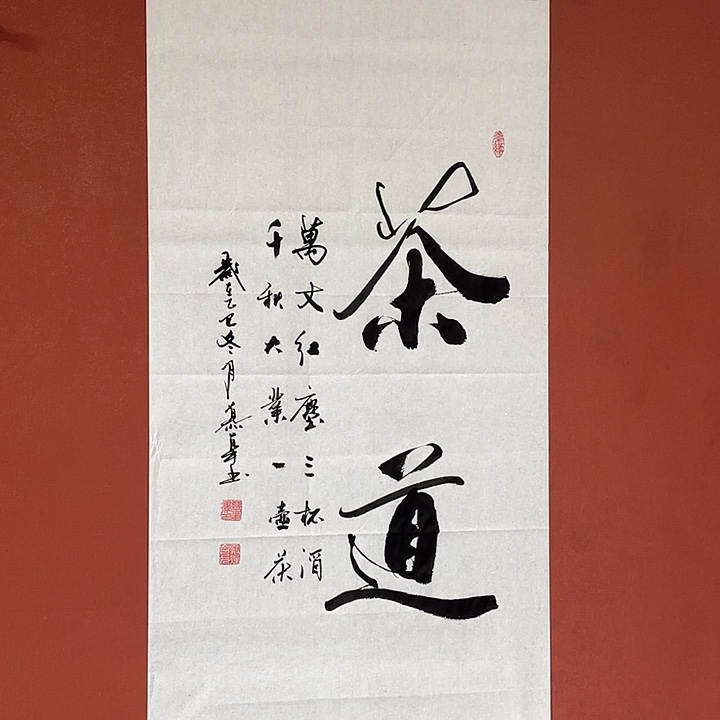 茶道
萬丈红塵三杯酒
千秋大業一壺茶
歲在乙巳冬月